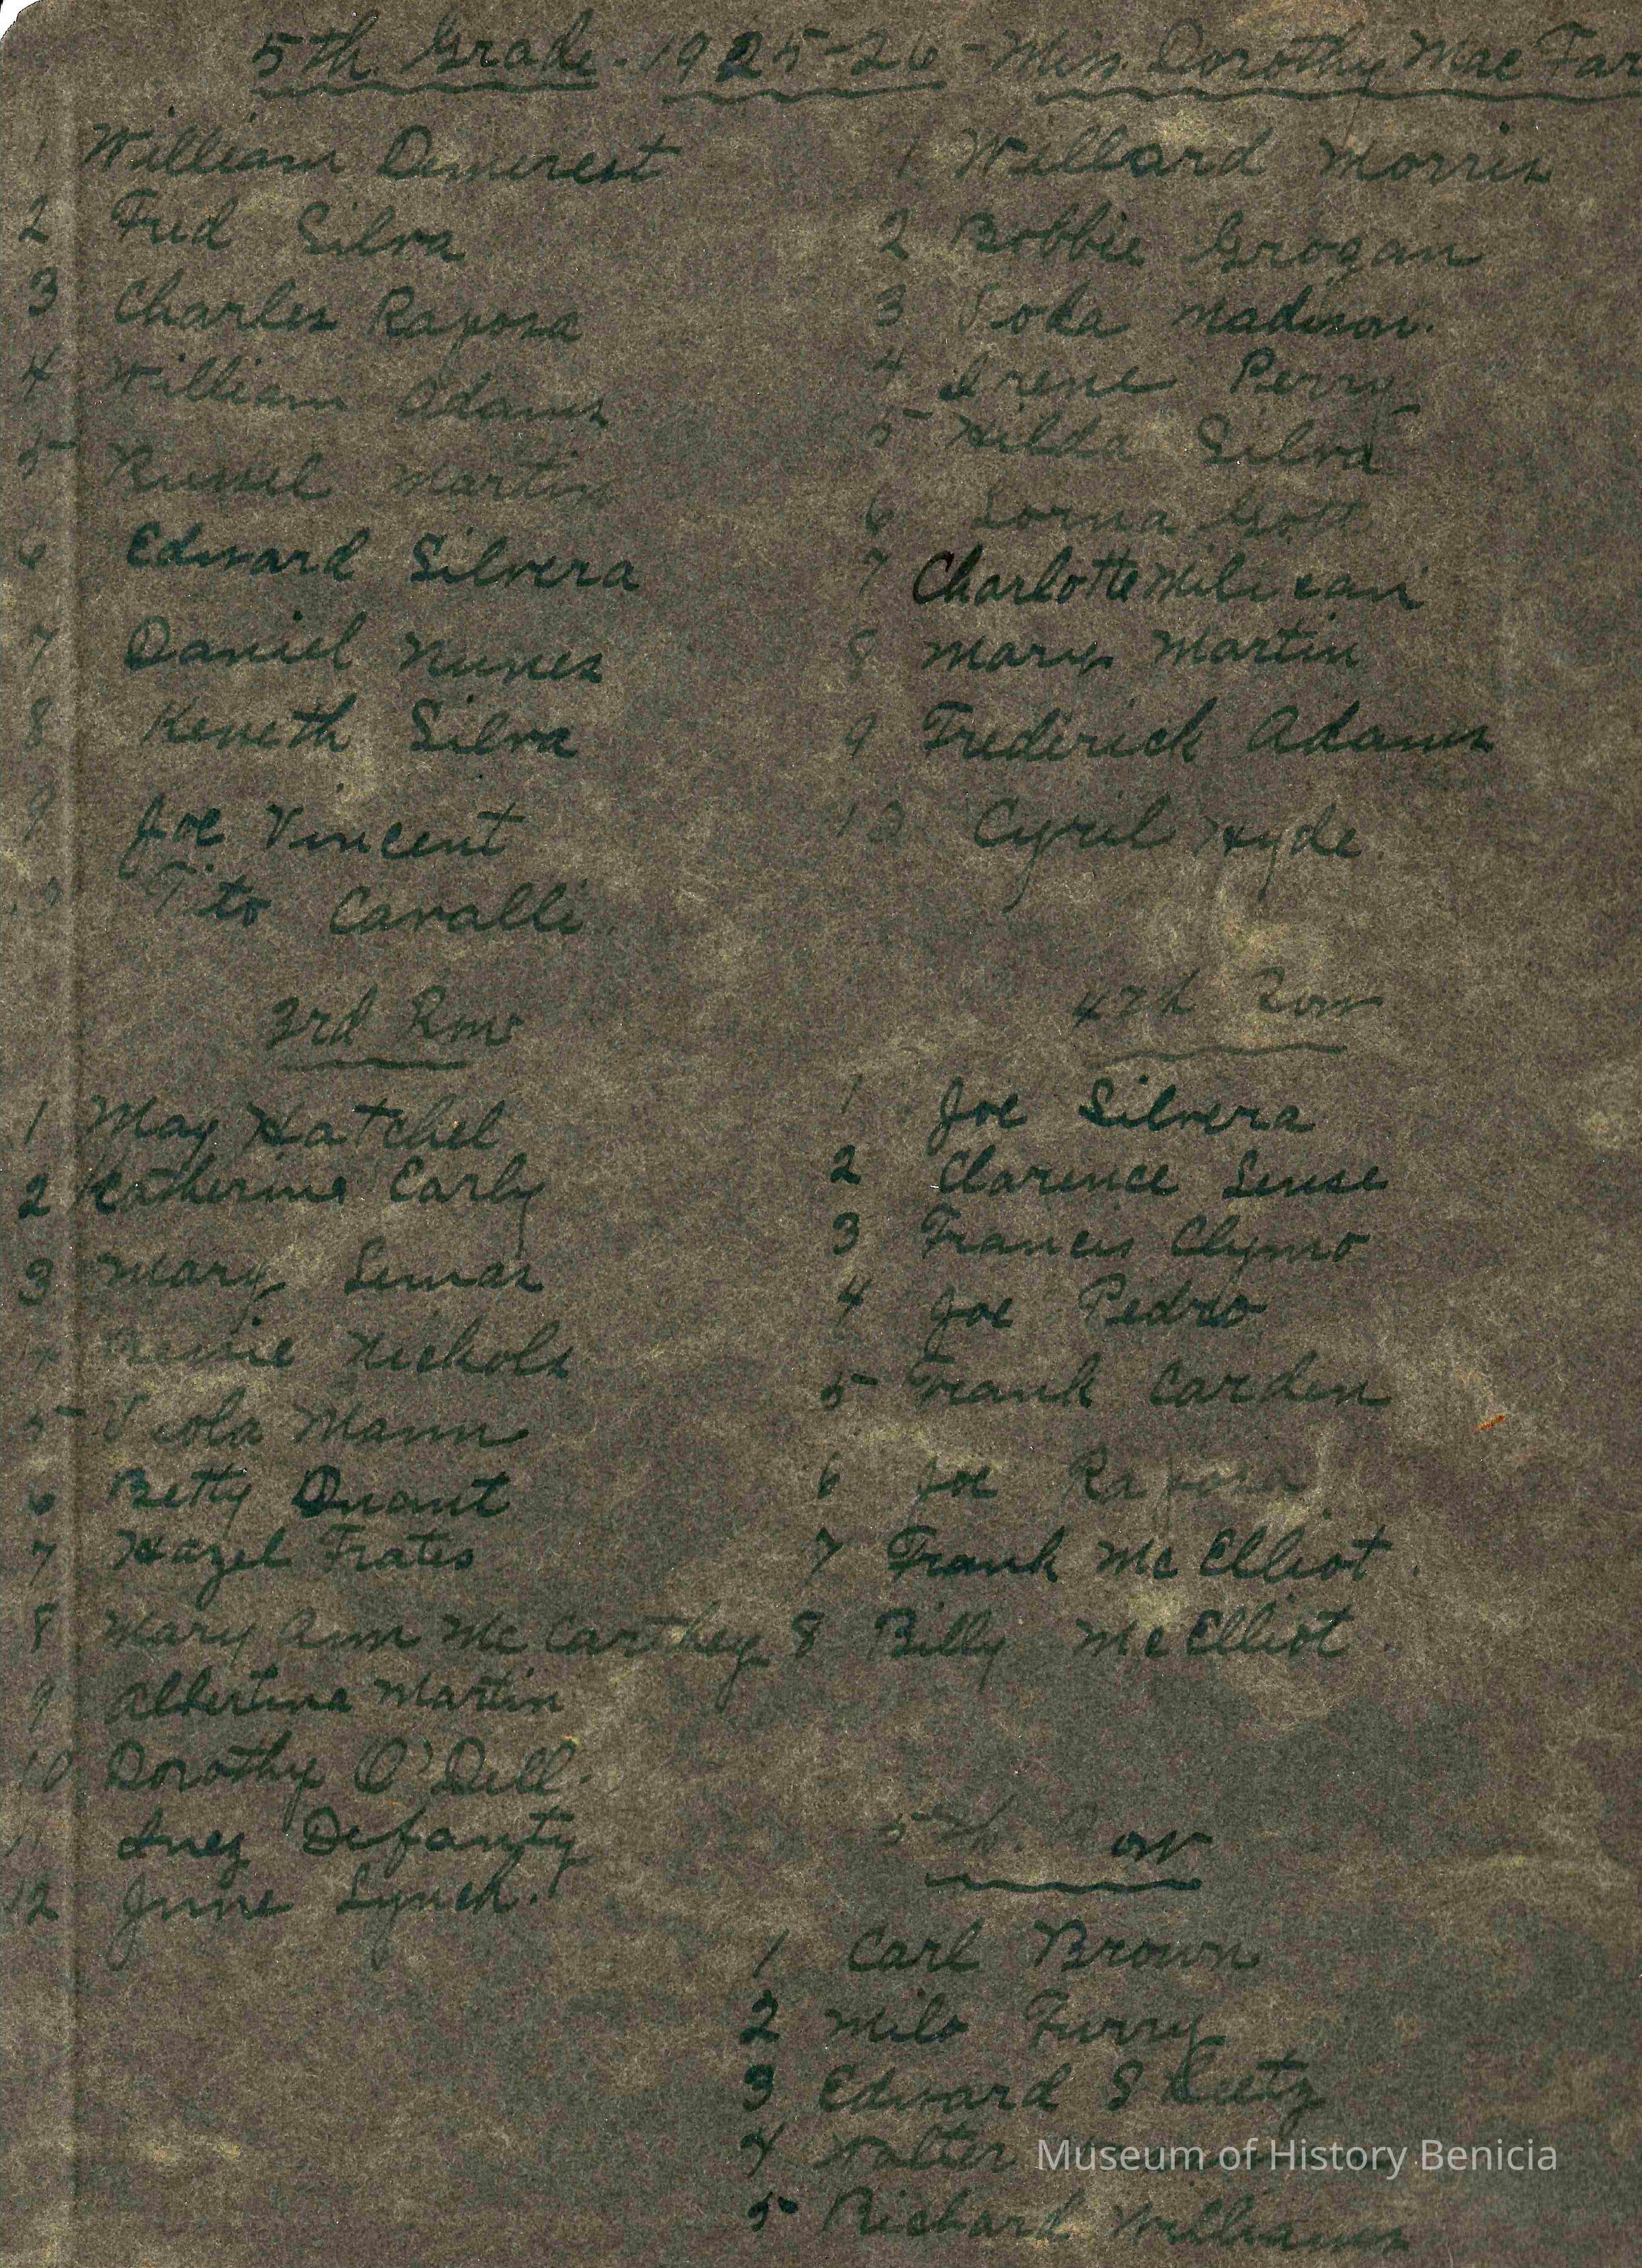 5th. Grade - 1925-26 - Miss. Dorothy Mac Far
1 William Demerest
2 Fred Silva
3 Charles Raposa
4 William Adams
5 Russel Martin
6 Edward Silvera
7 Daniel Nunes
8 Keneth Silva
9 Joe Vincent
Tito Cavalli.
1 Willard Morris
2 Bobbie Grogan
3 Madison.
4 Irene Perry
5 Hilda Silva
6 Lorna Gott
7 Charlotte Milisani
8 Mary Martin
9 Frederick Adams
10 Cyril Hyde.
3rd Row
1 May Hatchel
2 Katherine Early
3 Mary Lemas
4 Nichols
5 Viola Mann
6 Betty Duant
7 Hazel Frates
8 Mary Ann McCarthey
9 Albertina Martin
10 Dorothy O'Dell.
11 Inez Defanty
12 June Lynch.
4th Row
1 Joe Silvera
2 Clarence Sense
3 Francis Clymo
4 Joe Pedro
5 Frank Carden
6 Joe Raposa
7 Frank McElliot.
8 Billy McElliot.
5th. Row
1 Carl Brown
2 Milo Furry
3 Edward Sheetz
4 Walter
5 Richard Williams
Museum of History Benicia